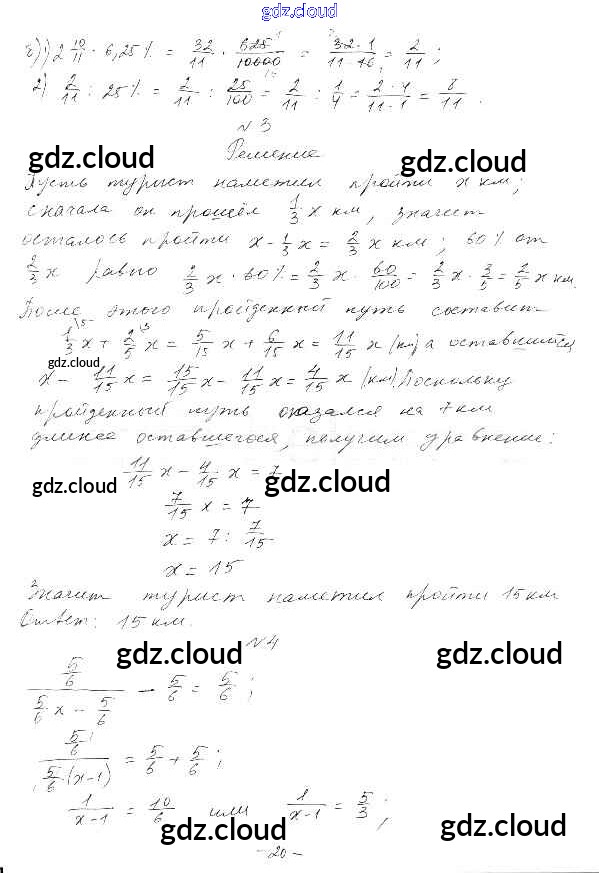 gdz.cloud
г) 1) 2 10/11 · 6,25% = 32/11 · 625/10000 = 32·1/11·16 = 2/11;
2) 2/11 : 25% = 2/11 : 25/100 = 2/11 : 1/4 = 2·4/11·1 = 8/11.
№3
gdz.cloud gdz.cloud
Решение
Пусть турист наметил пройти x км;
сначала он прошёл 1/3 x км, значит
осталось пройти x - 1/3 x = 2/3 x км; 60% от
2/3 x равно 2/3 x · 60% = 2/3 x · 60/100 = 2/3 x · 3/5 = 2/5 x км.
После этого пройденный путь составит
1/3 x + 2/5 x = 5/15 x + 6/15 x = 11/15 x (км) а оставшийся
gdz.cloud
x - 11/15 x = 15/15 x - 11/15 x = 4/15 x (км). Поскольку
gdz.cloud
пройденный путь оказался на 7 км
длиннее оставшегося, получим уравнение:
11/15 x - 4/15 x = 7
gdz.cloud gdz.cloud
7/15 x = 7
x = 7 : 7/15
x = 15
Значит турист наметил пройти 15 км
Ответ: 15 км.
№4
gdz.cloud gdz.cloud
5/6 / (5/6 x - 5/6) - 5/6 = 5/6;
5/6 / (5/6 (x-1)) = 5/6 + 5/6;
1/(x-1) = 10/6 или 1/(x-1) = 5/3;
gdz.cloud gdz.cloud
- 20 -